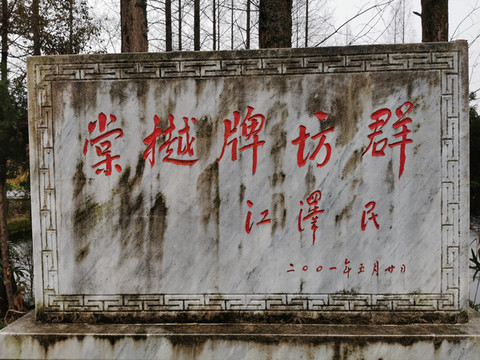 棠樾牌坊群
江澤民
二〇〇一年五月廿日